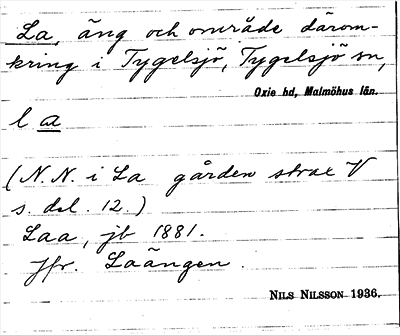 La, äng och område därom-
kring i Tygelsjö, Tygelsjö sn,
Oxie hd, Malmöhus län.
l a
(N.N. i La gården strax V
s. del. 12.)
Laa, jb 1881.
Jfr. Laängen.
NILS NILSSON 1936.